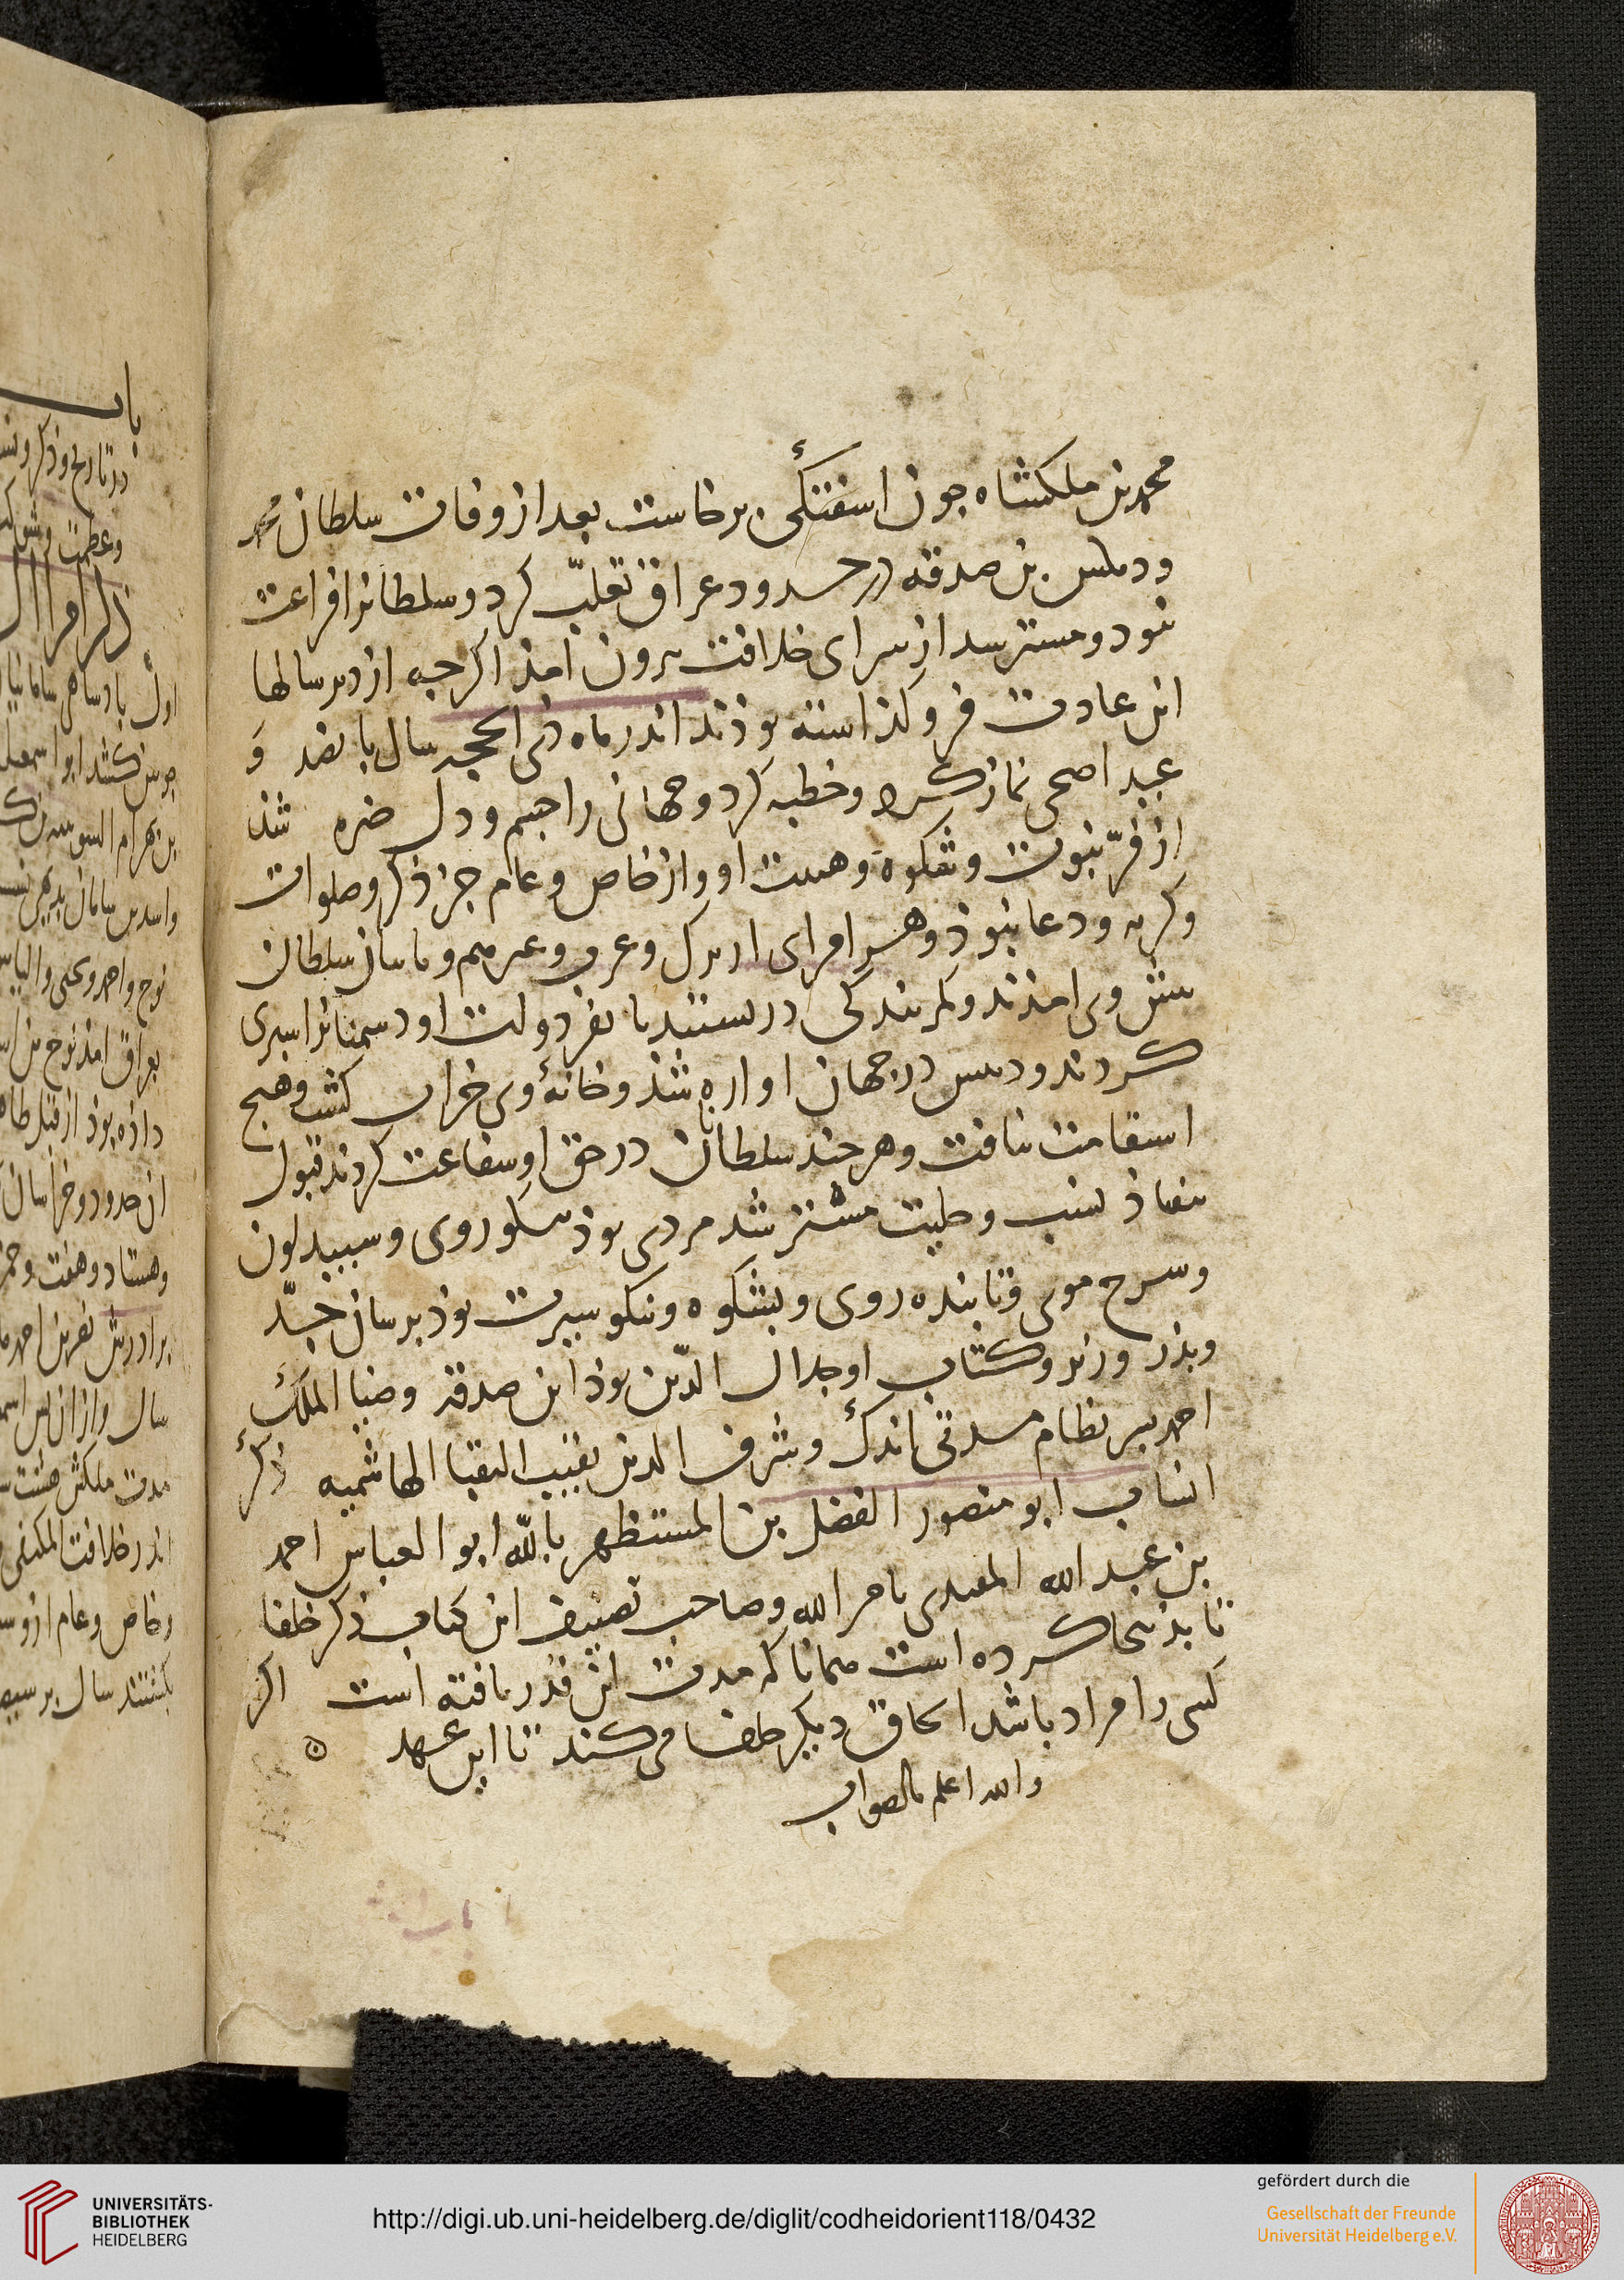 محمد بن ملکشاه جون اسفتکی برخاست بعد از وفات سلطان محمد
و دبیس بن صدقه در حدود عراق تغلّب کرد و سلطانرا فراغت
نبود و مسترشد از سرای خلافت برون امذ اکرجه از دیر سالها
این عادت فرو کذاسته بوذند اندر ماه ذی الحجه سال بانصد و
عید اضحی نماز کرد و خطبه کرد و جهانی را جسم و دل خیره شذ
از فرّ نبوت و شکوه و هیبت او و از خاص و عام جز ذکر و صلوات
و کریه و دعا نبوذ و همه امرای از ترک و عرب و
بیش وی امذند و کمر بندکی در بستند تا بفر دولت او دسمنانرا سبری
کردند و دبیس در جهان اواره شذ و خانهٔ وی خراب کشت و هیج
استقامت نیافت و هر جند سلطانان در حق او سفاعت کردند قبول
نیفتاذ نسب و حلیت مسترشد مردی بوذ نیکو روی و سبید لون
و سرخ موی و تابنده روی و بشکوه و نیکو سیرت بوذ بر سان جدّ
و بذر وزیر و کتّاب او جلال الدّین بوذ ابن صدقه و ضیا الملک
احمد بسر نظام مدتی اندک و شرف الدین نقیب النقبا الهاشمیه ذکر
انساب ابو منصور الفضل بن المستظهر بالله ابو العباس احمد
بن عبد الله المقتدی بامر الله و صاحب تصنیف این کتاب ذکر خلفا
تا بذینجا کرده است همانا که مدت این قدر یافته است اکر
کسی را مراد باشد الحاق دیکر خلفا می کند تا این عهد ه
والله اعلم بالصواب
باب
در تاریخ و ذکر و نسب
و عظمت و شوکت
اول بادساهی سامانیان
نوح و احمد و یحیی و الیاس
بعراق امذ نوح بن
داذه بوذ از قبل
ان حدود و خراسان
و هشتاد و هفت و
براذرش نصر بن احمد
سال و از ان بس
مدت ملکش هشت
اندر خلافت المکتفی
و خاص و عام ازو
بکشتند سال بر
UNIVERSITÄTS-
BIBLIOTHEK
HEIDELBERG
http://digi.ub.uni-heidelberg.de/diglit/codheidorient118/0432
gefördert durch die
Gesellschaft der Freunde
Universität Heidelberg e.V.